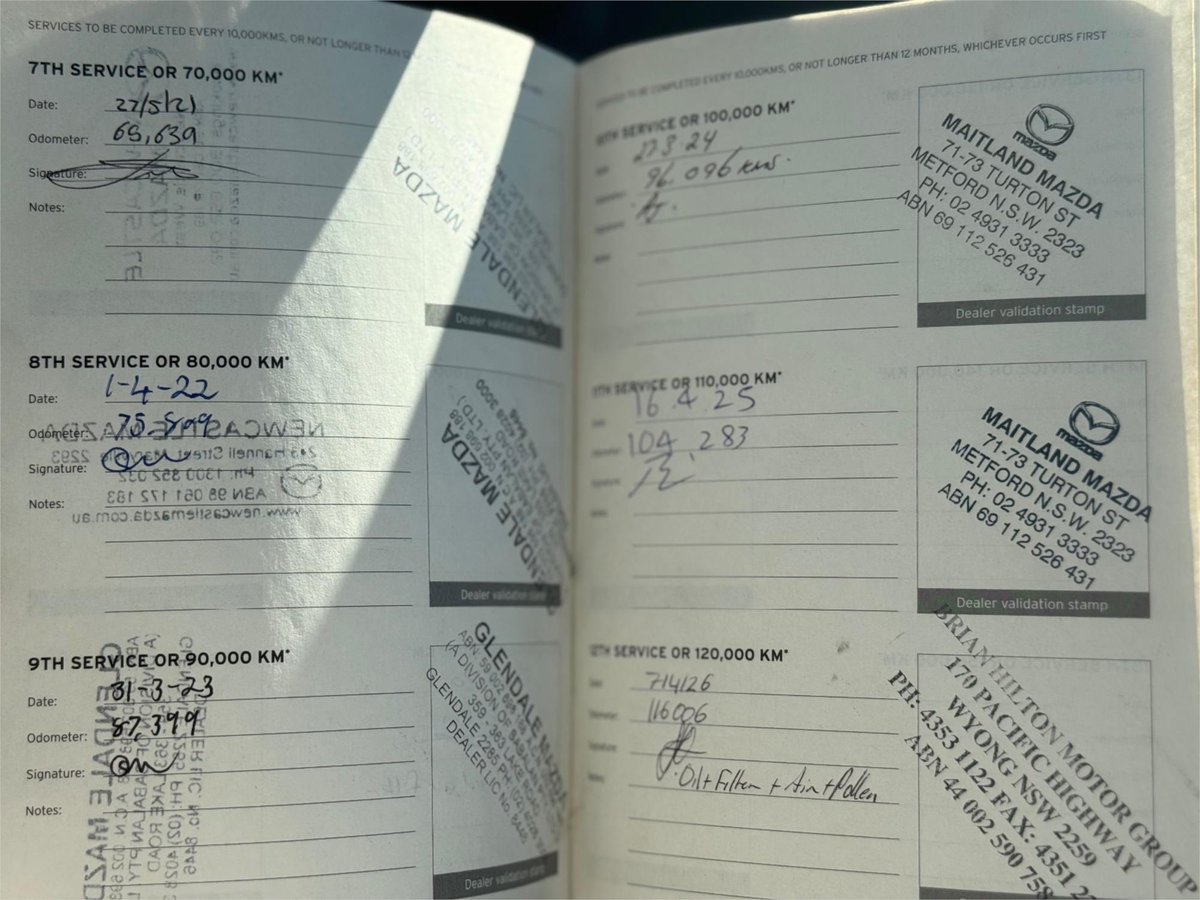 SERVICES TO BE COMPLETED EVERY 10,000KMS, OR NOT LONGER THAN 12
7TH SERVICE OR 70,000 KM*
Date: 27/5/21
Odometer: 65,639
Signature:
Notes:
GLENDALE MAZDA
Dealer validation
8TH SERVICE OR 80,000 KM*
Date: 1-4-22
Odometer:
Signature:
Notes:
NEWCASTLE MAZDA
Hannell Street
Ph: 1300 852 032
ABN 98 061 172 183
www.newcastlemazda.com.au
GLENDALE MAZDA
Dealer validation stamp
9TH SERVICE OR 90,000 KM*
Date: 31-3-23
Odometer: 87,399
Signature:
Notes:
GLENDALE MAZDA
ABN 59 002
(A DIVISION OF BABALAN
359 - 383 LAKE ROAD
GLENDALE 2285 PH (02) 4028
DEALER LIC No. 8446
Dealer validation stamp
SERVICES TO BE COMPLETED EVERY 10,000KMS, OR NOT LONGER THAN 12 MONTHS, WHICHEVER OCCURS FIRST
10TH SERVICE OR 100,000 KM*
27.3.24
96,096 kms.
mazda
MAITLAND MAZDA
71-73 TURTON ST
METFORD N.S.W. 2323
PH: 02 4931 3333
ABN 69 112 526 431
Dealer validation stamp
11TH SERVICE OR 110,000 KM*
16.4.25
104,283
mazda
MAITLAND MAZDA
71-73 TURTON ST
METFORD N.S.W. 2323
PH: 02 4931 3333
ABN 69 112 526 431
Dealer validation stamp
12TH SERVICE OR 120,000 KM*
7/4/26
116006
Oil + Filter + Air + Pollen
BRIAN HILTON MOTOR GROUP
170 PACIFIC HIGHWAY
WYONG NSW 2259
PH: 4353 1122 FAX: 4351
ABN 44 002 590 758